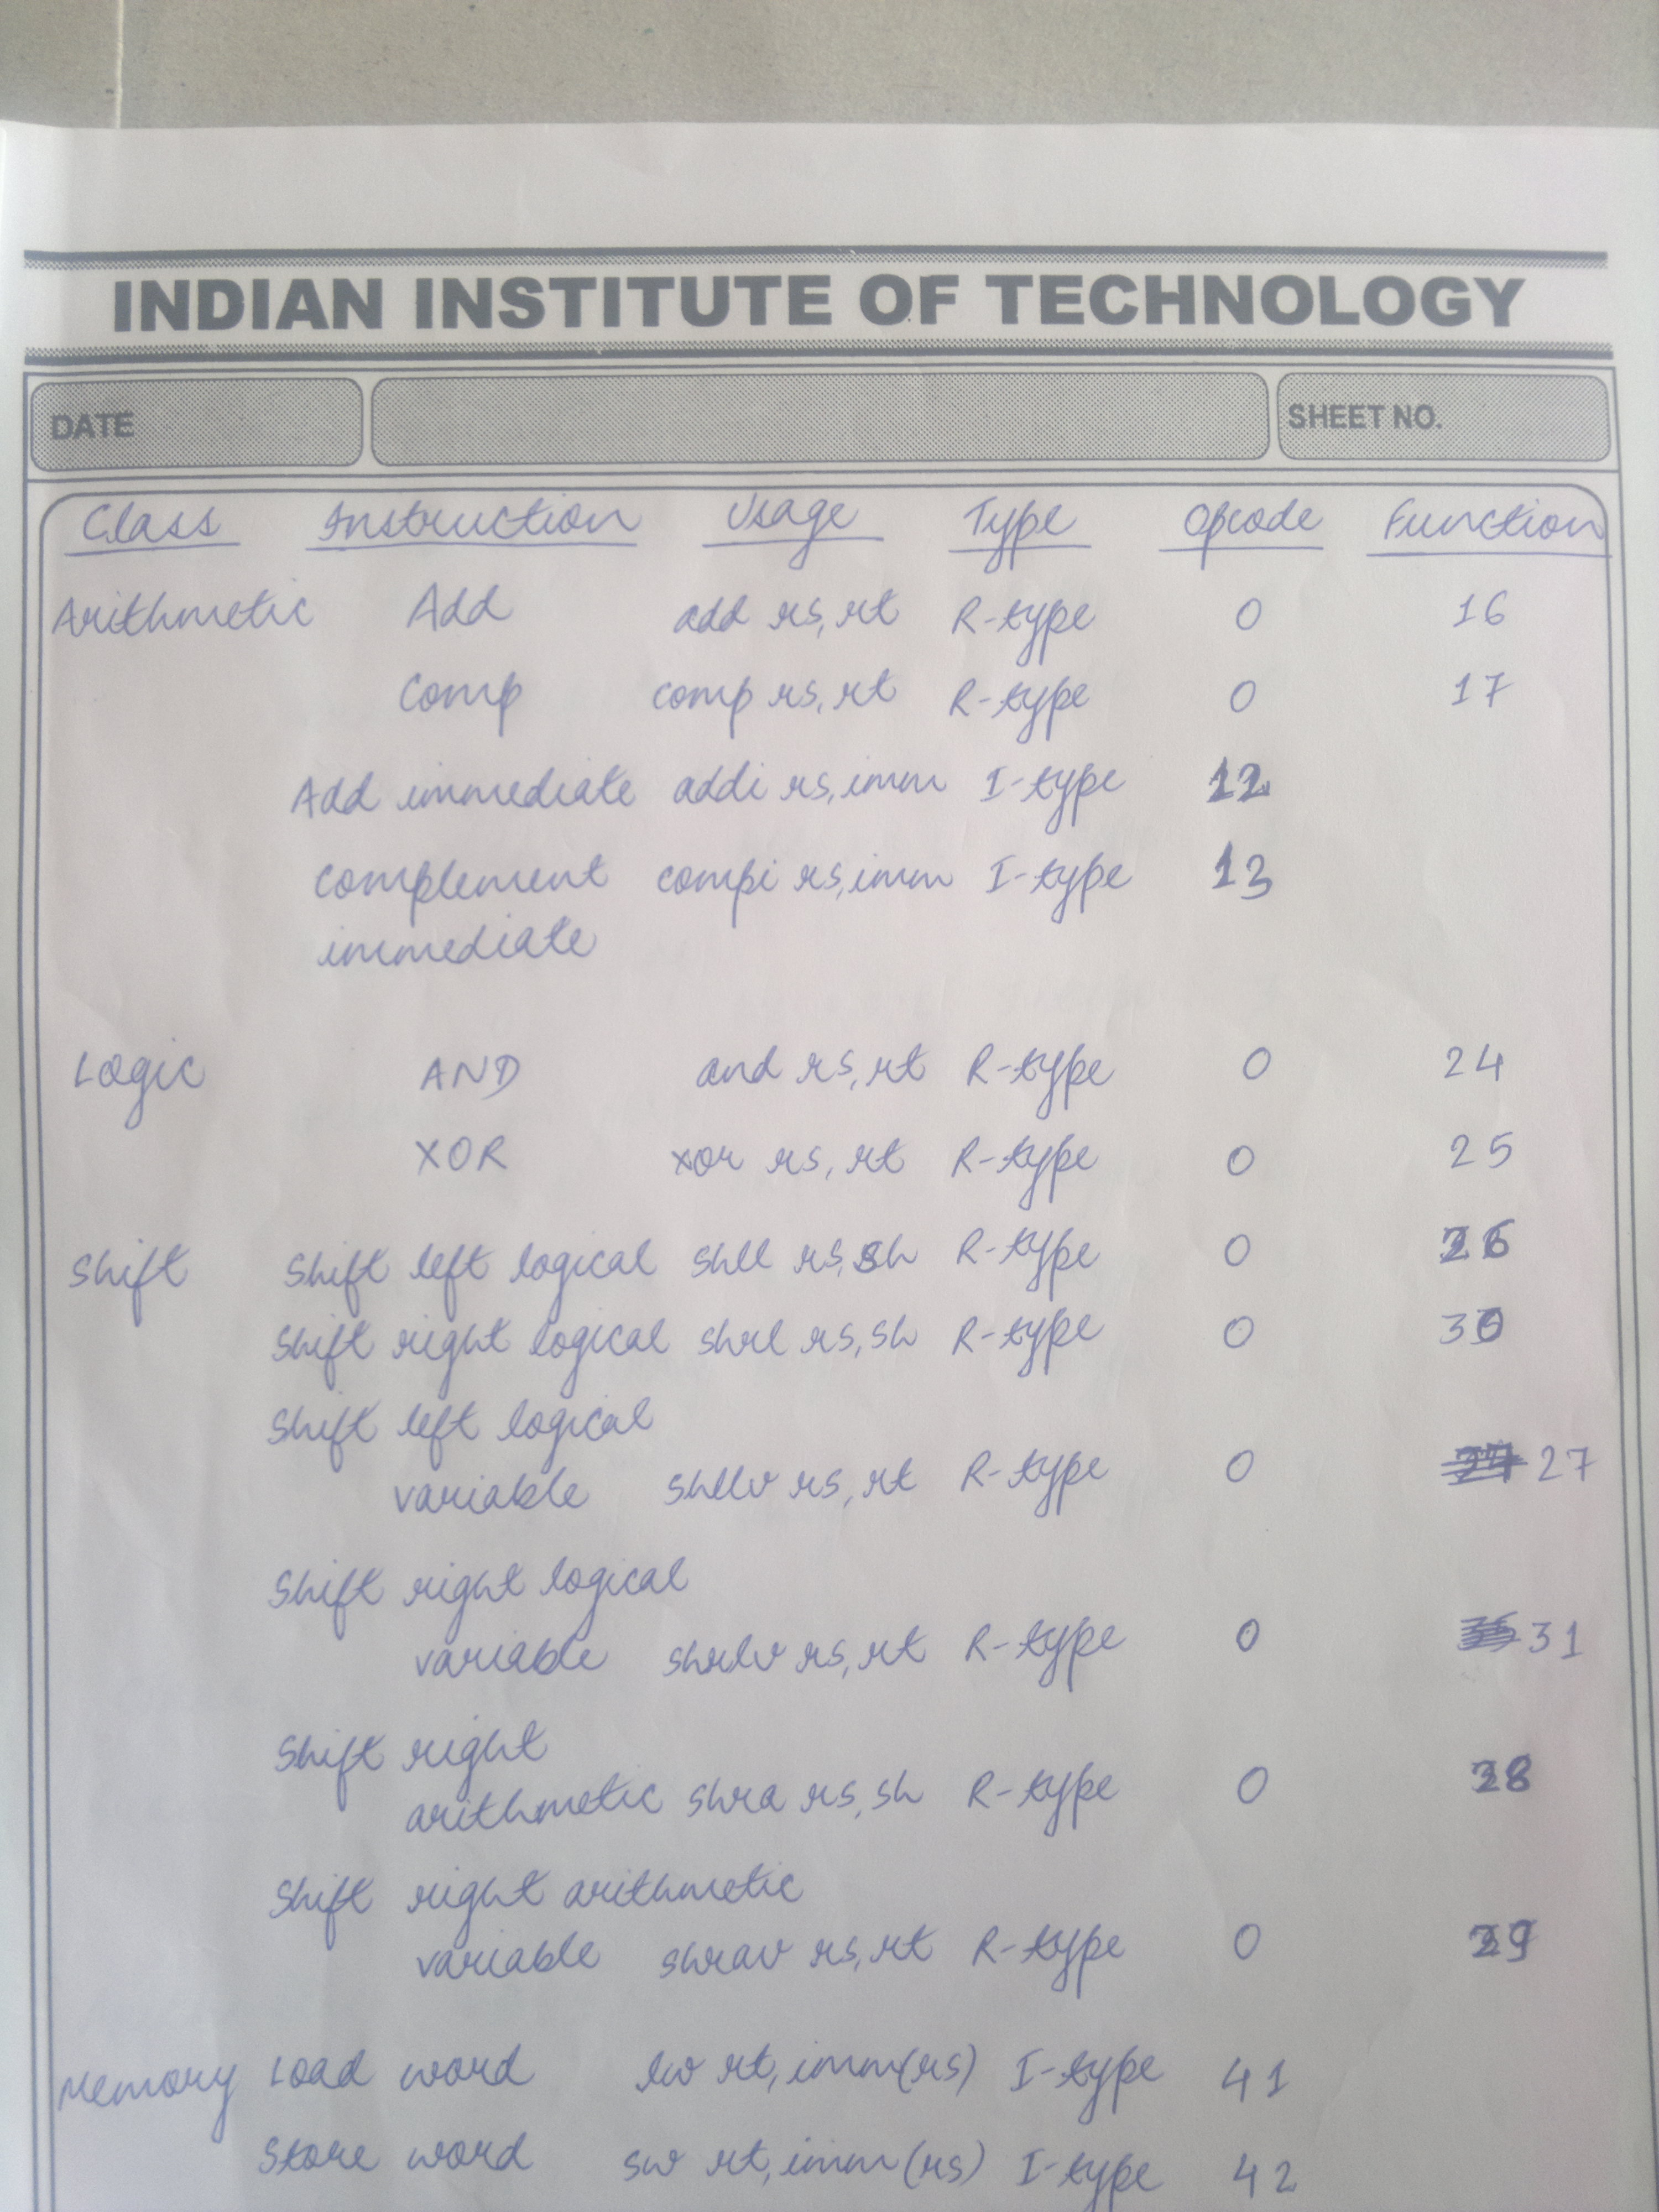 INDIAN INSTITUTE OF TECHNOLOGY
DATE SHEET NO.
Class Instruction Usage Type Opcode Function
Arithmetic Add add rs, rt R-type 0 16
Comp comp rs, rt R-type 0 17
Add immediate addi rs, imm I-type 12
Complement compi rs, imm I-type 13
immediate
Logic AND and rs, rt R-type 0 24
XOR xor rs, rt R-type 0 25
Shift Shift left logical shll rs, sh R-type 0 26
Shift right logical shrl rs, sh R-type 0 30
Shift left logical
variable shllv rs, rt R-type 0 27
Shift right logical
variable shrlv rs, rt R-type 0 31
Shift right
arithmetic shra rs, sh R-type 0 28
Shift right arithmetic
variable shrav rs, rt R-type 0 29
Memory Load word lw rt, imm(rs) I-type 41
Store word sw rt, imm(rs) I-type 42